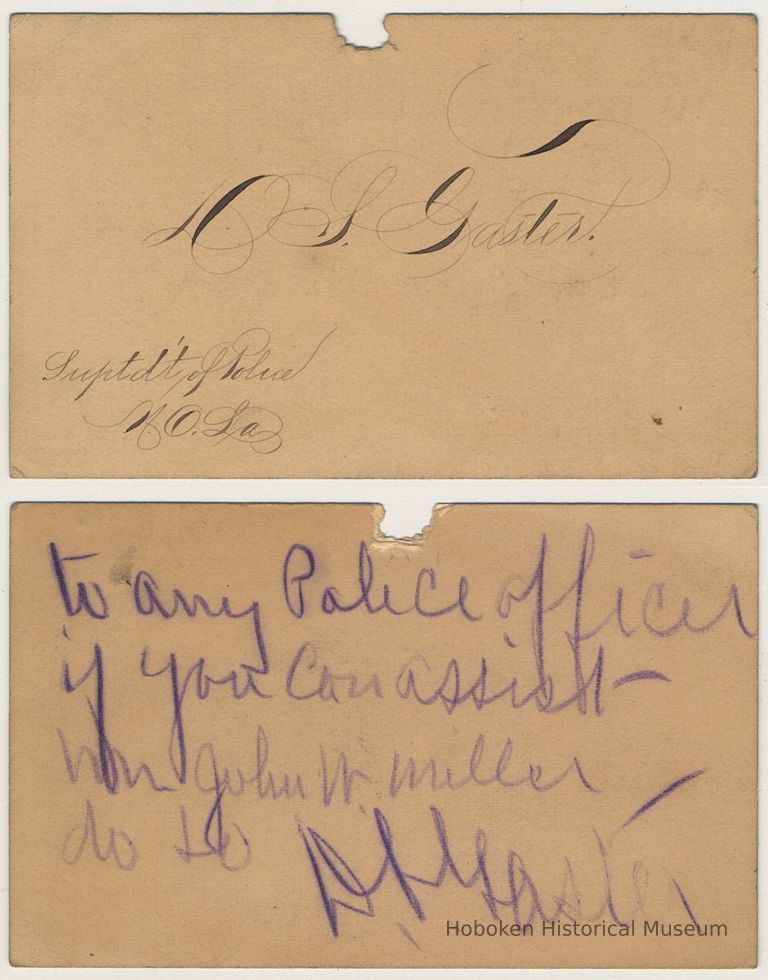 D. S. Gaster.
Suptd't, of Police
N. O. La
to any Police officer
if you can assist
Hon John W. Miller
do so D. S. Gaster
Hoboken Historical Museum